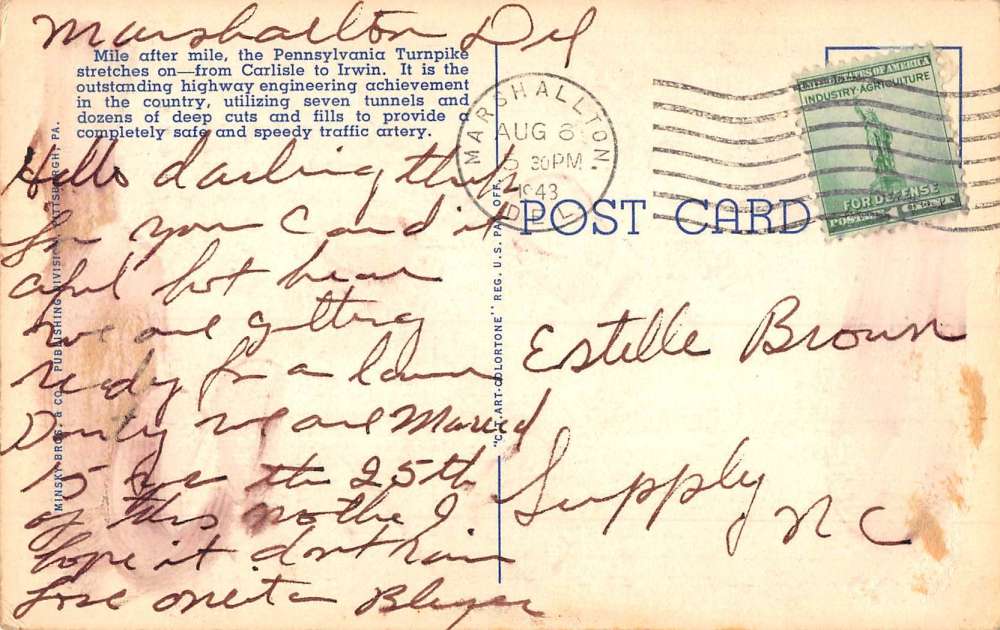 Marshalton Del
Mile after mile, the Pennsylvania Turnpike
stretches on—from Carlisle to Irwin. It is the
outstanding highway engineering achievement
in the country, utilizing seven tunnels and
dozens of deep cuts and fills to provide a
completely safe and speedy traffic artery.
Hello darling thnk
for your Card it
aful hot hear
we are getting
ready for a lawn
Party we are Maried
15 the 25th
of this nothe I
hope it dont rain
Love oneta
MINSKY BROS. & CO. PUBLISHING DIVISION, PITTSBURGH, PA.
"C.T. ART-COLORTONE" REG. U.S. PAT. OFF.
MARSHALLTON,
AUG 6
5 30PM
1943
DEL.
UNITED STATES OF AMERICA
INDUSTRY-AGRICULTURE
FOR DEFENSE
POSTAGE 1
POST CARD
Estelle Brown
Supply
NC